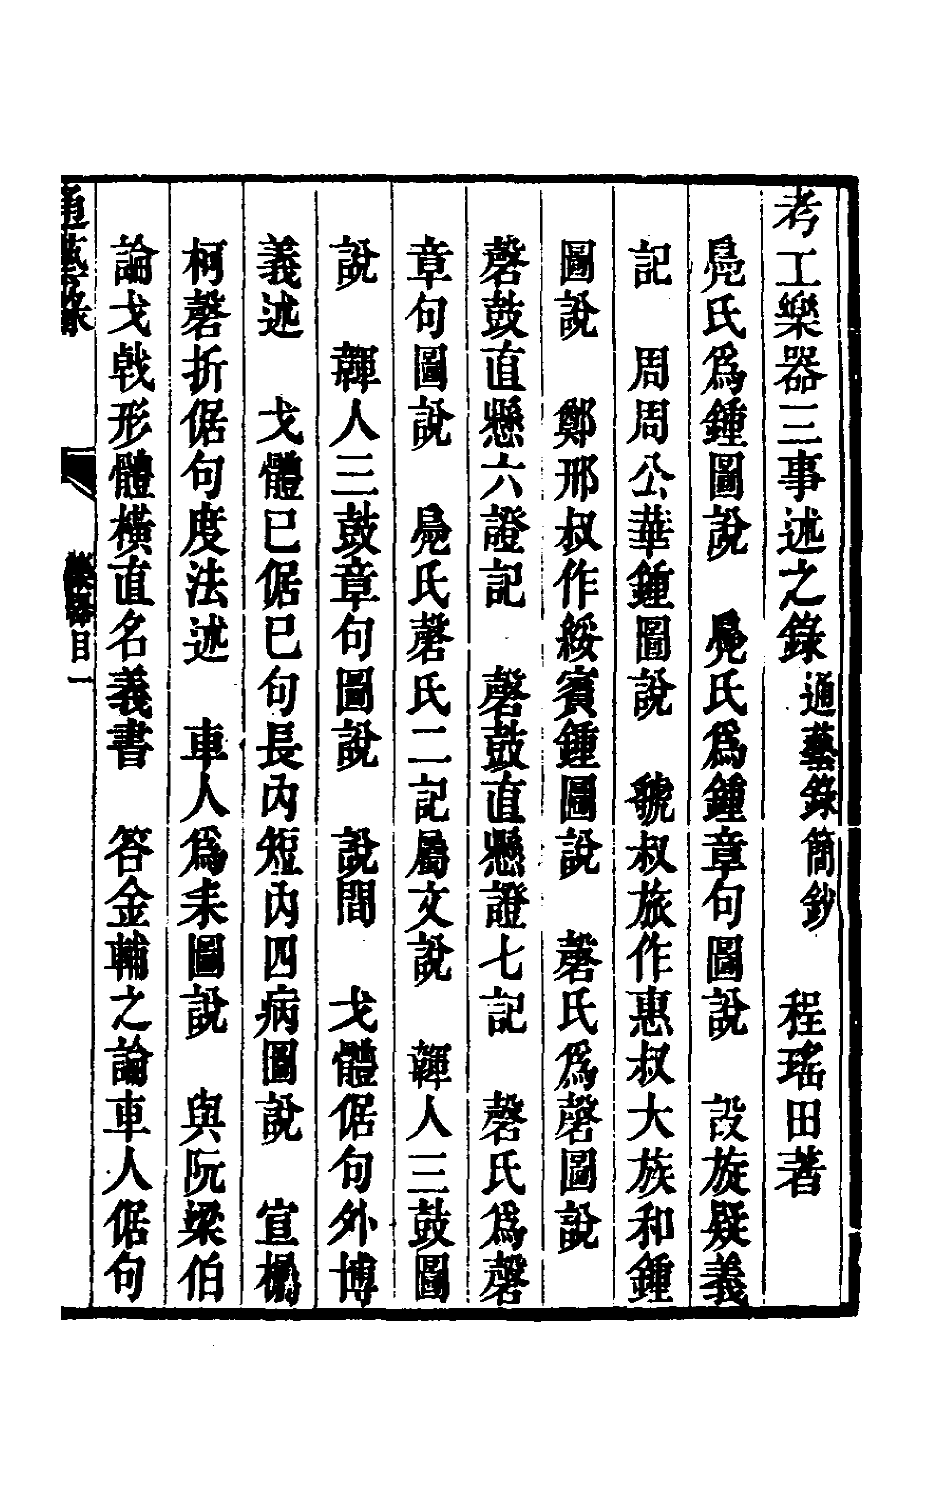 考工樂器三事述之錄 通藝錄簡鈔 程瑤田著
鳧氏爲鍾圖說 鳧氏爲鍾章句圖說 設旋疑義
記 周周公華鍾圖說 虢叔旅作惠叔大族和鍾
圖說 鄭邢叔作綏賓鍾圖說 磬氏爲磬圖說
磬鼓直懸六證記 磬鼓直懸證七記 磬氏爲磬
章句圖說 鳧氏磬氏二記屬文說 韗人三鼓圖
說 韗人三鼓章句圖說 說間 戈體倨句外博
義述 戈體已倨已句長內短內四病圖說 宣欘
柯磬折倨句度法述 車人爲耒圖說 與阮梁伯
論戈戟形體橫直名義書 答金輔之論車人倨句
通藝錄 目 一